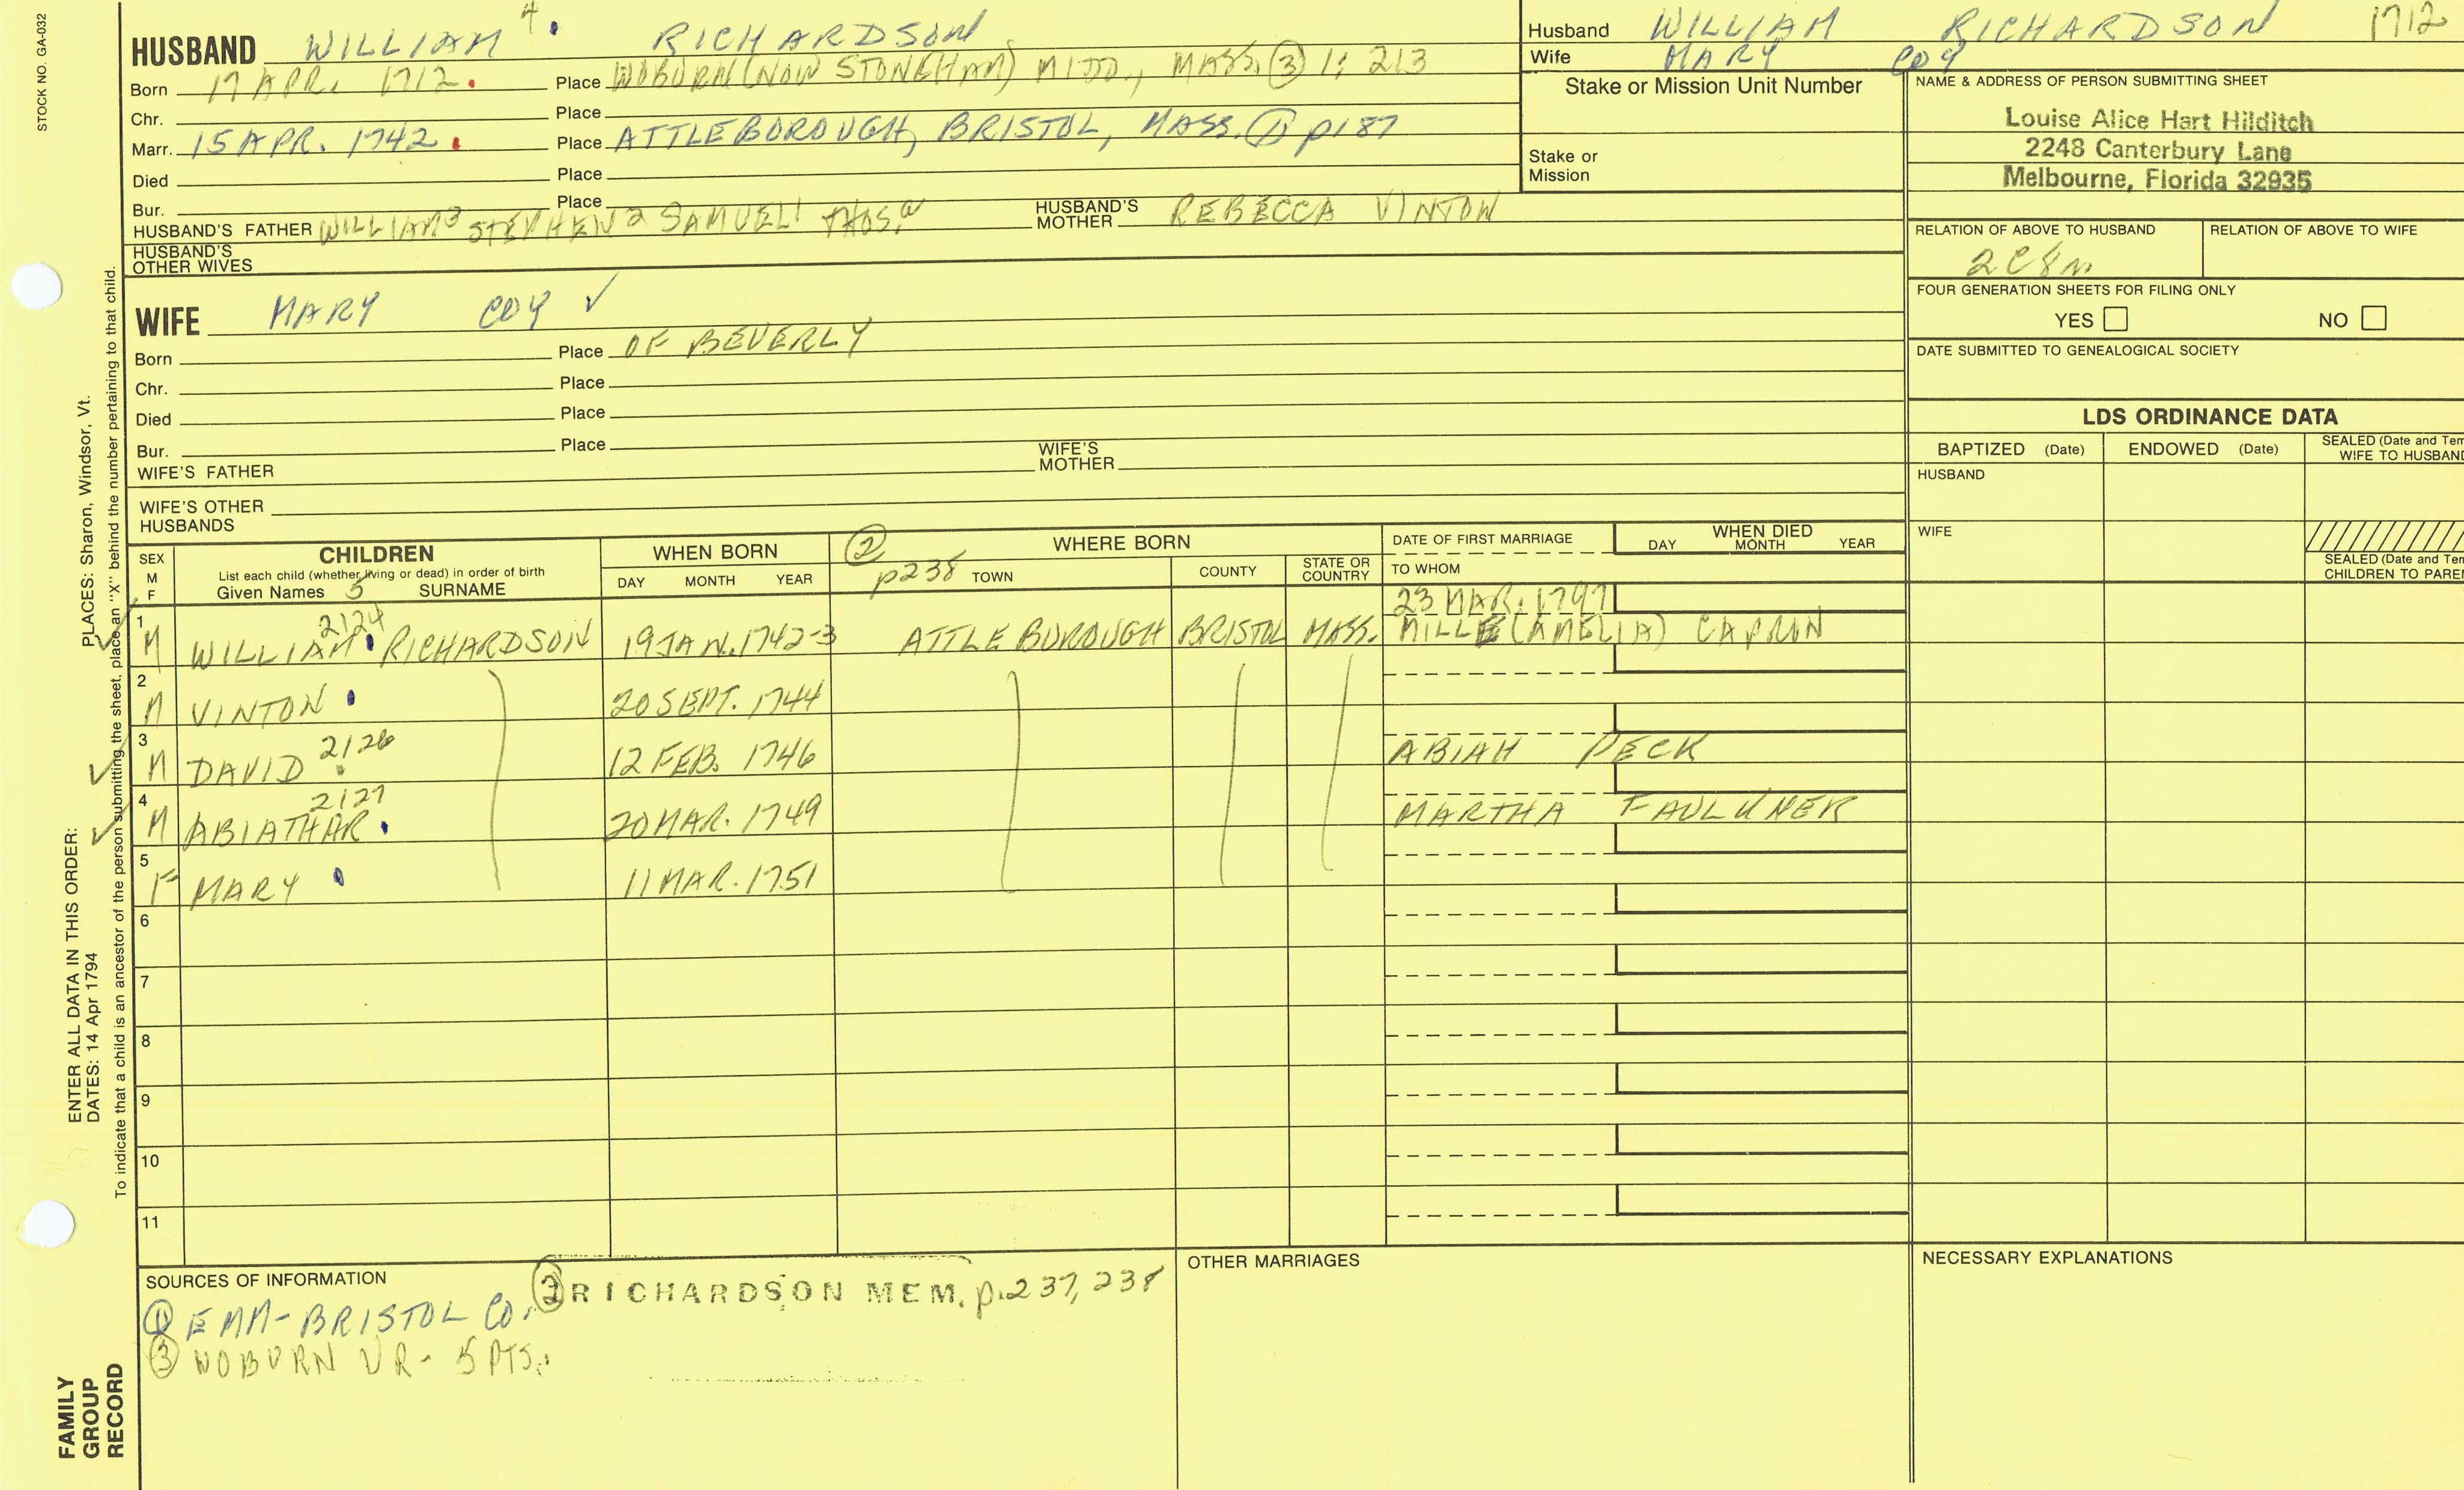 STOCK NO. GA-032
HUSBAND WILLIAM 4. RICHARDSON
Born 17 APR. 1712. Place WOBURN (NOW STONEHAM) MIDD., MASS. (3) 1: 213
Chr. Place
Marr. 15 APR. 1742. Place ATTLEBOROUGH, BRISTOL, MASS. (1) p187
Died Place
Bur. Place
HUSBAND'S FATHER WILLIAM3 STEPHEN2 SAMUEL1 THOS.a HUSBAND'S MOTHER REBECCA VINTON
HUSBAND'S OTHER WIVES
Husband WILLIAM RICHARDSON 1712
Wife MARY COY
Stake or Mission Unit Number
Stake or Mission
NAME & ADDRESS OF PERSON SUBMITTING SHEET
Louise Alice Hart Hilditch
2248 Canterbury Lane
Melbourne, Florida 32935
RELATION OF ABOVE TO HUSBAND
RELATION OF ABOVE TO WIFE
2C8R
FOUR GENERATION SHEETS FOR FILING ONLY
YES NO
DATE SUBMITTED TO GENEALOGICAL SOCIETY
WIFE MARY COY ✓
Born Place OF BEVERLY
Chr. Place
Died Place
Bur. Place
WIFE'S FATHER WIFE'S MOTHER
WIFE'S OTHER HUSBANDS
LDS ORDINANCE DATA
BAPTIZED (Date) ENDOWED (Date) SEALED (Date and Tem
WIFE TO HUSBAND
HUSBAND
WIFE
SEALED (Date and Tem
CHILDREN TO PAREN
SEX M F
CHILDREN
List each child (whether living or dead) in order of birth
Given Names 5 SURNAME
WHEN BORN
DAY MONTH YEAR
(2) p238
WHERE BORN
TOWN COUNTY STATE OR COUNTRY
DATE OF FIRST MARRIAGE
TO WHOM
WHEN DIED
DAY MONTH YEAR
23 MAR. 1797
1 M WILLIAM 2124 RICHARDSON 19 JAN. 1742-3 ATTLEBOROUGH BRISTOL MASS. MILLE (AMELIA) CAPRON
2 M VINTON 20 SEPT. 1744
3 M DAVID 2126 12 FEB. 1746 ABIAH PECK
4 M ABIATHAR 2127 20 MAR. 1749 MARTHA FAULKNER
5 F MARY 11 MAR. 1751
6
7
8
9
10
11
SOURCES OF INFORMATION
(1) EMM-BRISTOL CO. (2) RICHARDSON MEM. p.237, 238
(3) WOBURN VR- 5 PTS.
OTHER MARRIAGES
NECESSARY EXPLANATIONS
PLACES: Sharon, Windsor, Vt.
To indicate that a child is an ancestor of the person submitting the sheet, place an "X" behind the number pertaining to that child.
ENTER ALL DATA IN THIS ORDER:
DATES: 14 Apr 1794
FAMILY
GROUP
RECORD